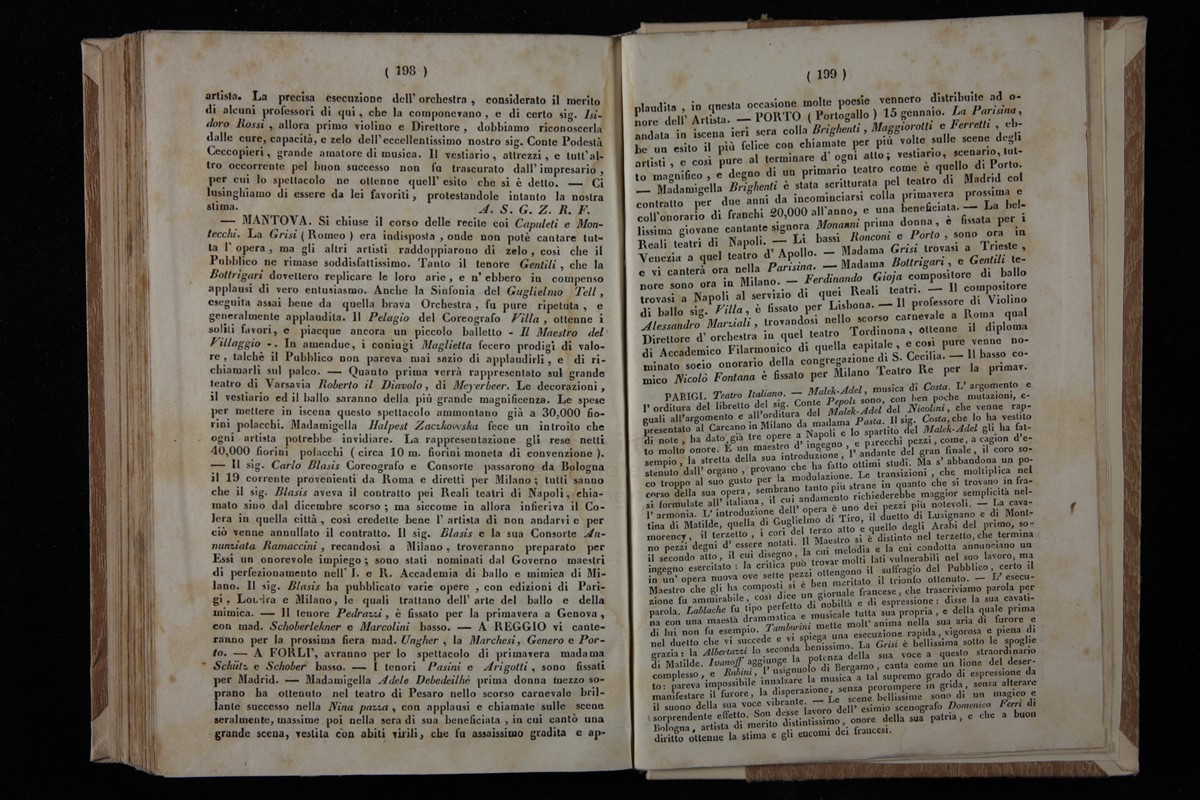 ( 198 )
artista. La precisa esecuzione dell' orchestra , considerato il merito
di alcuni professori di quì , che la componevano , e di certo sig. Isi-
doro Rossi , allora primo violino e Direttore , dobbiamo riconoscerla
dalle cure, capacità, e zelo dell'eccellentissimo nostro sig. Conte Podestà
Ceccopieri , grande amatore di musica. Il vestiario , attrezzi , e tutt'al-
tro occorrente pel buon successo non fu trascurato dall'impresario ,
per cui lo spettacolo ne ottenne quell' esito che si è detto. — Ci
lusinghiamo di essere da lei favoriti , protestandole intanto la nostra
stima. A. S. G. Z. R. F.
— MANTOVA. Si chiuse il corso delle recite coi Capuleti e Mon-
tecchi. La Grisi ( Romeo ) era indisposta , onde non potè cantare tut-
ta l' opera , ma gli altri artisti raddoppiarono di zelo , così che il
Pubblico ne rimase soddisfattissimo. Tanto il tenore Gentili , che la
Bottrigari dovettero replicare le loro arie , e n' ebbero in compenso
applausi di vero entusiasmo. Anche la Sinfonia del Guglielmo Tell ,
eseguita assai bene da quella brava Orchestra , fu pure ripetuta , e
generalmente applaudita. Il Pelagio del Coreografo Villa , ottenne i
soliti favori, e piacque ancora un piccolo balletto - Il Maestro del
Villaggio -. In amendue, i coniugi Maglietta fecero prodigi di valo-
re , talchè il Pubblico non pareva mai sazio di applaudirli , e di ri-
chiamarli sul palco. — Quanto prima verrà rappresentato sul grande
teatro di Varsavia Roberto il Diavolo , di Meyerbeer. Le decorazioni ,
il vestiario ed il ballo saranno della più grande magnificenza. Le spese
per mettere in iscena questo spettacolo ammontano già a 30,000 fio-
rini polacchi. Madamigella Halpest Zaczkowska fece un introito che
ogni artista potrebbe invidiare. La rappresentazione gli rese netti
40,000 fiorini polacchi ( circa 10 m. fiorini moneta di convenzione ).
— Il sig. Carlo Blasis Coreografo e Consorte passarono da Bologna
il 19 corrente provenienti da Roma e diretti per Milano ; tutti sanno
che il sig. Blasis aveva il contratto pei Reali teatri di Napoli, chia-
mato sino dal dicembre scorso ; ma siccome in allora infieriva il Co-
lera in quella città , così credette bene l' artista di non andarvi e per
ciò venne annullato il contratto. Il sig. Blasis e la sua Consorte An-
nunziata Ramaccini , recandosi a Milano , troveranno preparato per
Essi un onorevole impiego ; sono stati nominati dal Governo maestri
di perfezionamento nell' I. e R. Accademia di ballo e mimica di Mi-
lano. Il sig. Blasis ha pubblicato varie opere , con edizioni di Pari-
gi , Londra e Milano, le quali trattano dell' arte del ballo e della
mimica. — Il tenore Pedrazzi , è fissato per la primavera a Genova ,
con mad. Schoberlekner e Marcolini basso. — A REGGIO vi cante-
ranno per la prossima fiera mad. Ungher , la Marchesi, Genero e Por-
to. — A FORLI', avranno per lo spettacolo di primavera madama
Schütz e Schober basso. — I tenori Pasini e Arigotti , sono fissati
per Madrid. — Madamigella Adele Debedeilhè prima donna mezzo so-
prano ha ottenuto nel teatro di Pesaro nello scorso carnevale bril-
lante successo nella Nina pazza , con applausi e chiamate sulle scene
seralmente, massime poi nella sera di sua beneficiata , in cui cantò una
grande scena, vestita con abiti virili, che fu assaissimo gradita e ap-
( 199 )
plaudita , in questa occasione molte poesie vennero distribuite ad o-
nore dell' Artista. — PORTO ( Portogallo ) 15 gennaio. La Parisina,
andata in iscena ieri sera colla Brighenti , Maggiorotti e Ferretti , eb-
be un esito il più felice con chiamate per più volte sulle scene degli
artisti , e così pure al terminare d' ogni atto ; vestiario, scenario, tut-
to magnifico , e degno di un primario teatro come è quello di Porto.
— Madamigella Brighenti è stata scritturata pel teatro di Madrid col
contratto per due anni da incominciarsi colla primavera prossima e
coll'onorario di franchi 20,000 all'anno, e una beneficiata. — La bel-
lissima giovane cantante signora Monanni prima donna, è fissata per i
Reali teatri di Napoli. — Li bassi Ronconi e Porto , sono ora in
Venezia a quel teatro d' Apollo. — Madama Grisi trovasi a Trieste ,
e vi canterà ora nella Parisina. — Madama Bottrigari , e Gentili te-
nore sono ora in Milano. — Ferdinando Gioja compositore di ballo
trovasi a Napoli al servizio di quei Reali teatri. — Il compositore
di ballo sig. Villa, è fissato per Lisbona. — Il professore di Violino
Alessandro Marziali , trovandosi nello scorso carnevale a Roma qual
Direttore d' orchestra in quel teatro Tordinona, ottenne il diploma
di Accademico Filarmonico di quella capitale , e così pure venne no-
minato socio onorario della congregazione di S. Cecilia. — Il basso co-
mico Nicolò Fontana è fissato per Milano Teatro Re per la primav.
PARIGI. Teatro Italiano. — Malek-Adel, musica di Costa. L' argomento e
l' orditura del libretto del sig. Conte Pepoli sono, con ben poche mutazioni, e-
guali all'argomento e all'orditura del Malek-Adel del Nicolini, che venne rap-
presentato al Carcano in Milano da madama Pasta. Il sig. Costa, che lo ha vestito
di note , ha dato già tre opere a Napoli e lo spartito del Malek-Adel gli ha fat-
to molto onore. È un maestro d' ingegno , e parecchi pezzi , come , a cagion d'e-
sempio , la stretta della sua introduzione , l' andante del gran finale, il coro so-
stenuto dall' organo , provano che ha fatto ottimi studi. Ma s' abbandona un po-
co troppo al suo gusto per la modulazione. Le transizioni , che moltiplica nel
corso della sua opera, sembrano tanto più strane in quanto che si trovano in fra-
si formulate all' italiana, il cui andamento richiederebbe maggior semplicità nel-
l' armonia. L' introduzione dell' opera è uno dei pezzi più notevoli. — La cava-
tina di Matilde, quella di Guglielmo di Tiro, il duetto di Lusignano e di Mont-
morency , il terzetto , i cori del terzo atto e quello degli Arabi del primo, so-
no pezzi degni d' essere notati. Il Maestro si è distinto nel terzetto, che termina
il secondo atto , il cui disegno , la cui melodia e la cui condotta annunciano un
ingegno esercitato : la critica può trovar molti lati vulnerabili nel suo lavoro, ma
in un' opera nuova ove sette pezzi ottengono il suffragio del Pubblico , certo il
Maestro che gli ha composti si è ben meritato il trionfo ottenuto. — L' esecu-
zione fu ammirabile , così dice un giornale francese , che trascriviamo parola per
parola. Lablache fu tipo perfetto di nobiltà e di espressione : disse la sua cavati-
na con una maestà drammatica e musicale tutta sua propria , e della quale prima
di lui non fu esempio. Tamburini mette molt' anima nella sua aria di furore e
nel duetto che vi succede e vi spiega una esecuzione rapida , vigorosa e piena di
grazia : la Albertazzi lo seconda benissimo. La Grisi è bellissima sotto le spoglie
di Matilde. Ivanoff aggiunge la potenza della sua voce a questo straordinario
complesso , e Rubini, l' usignuolo di Bergamo , canta come un lione del deser-
to : pareva impossibile innalzare la musica a tal supremo grado di espressione da
manifestare il furore, la disperazione, senza prorompere in grida, senza alterare
il suono della sua voce vibrante. — Le scene bellissime sono di un magico e
sorprendente effetto. Son desse lavoro dell' esimio scenografo Domenico Ferri di
Bologna, artista di merito distintissimo, onore della sua patria , e che a buon
diritto ottenne la stima e gli encomi dei francesi.